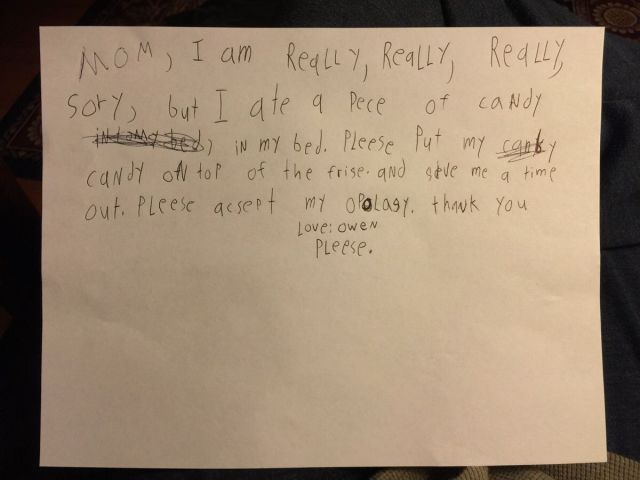 MOM, I am ReaLLY, ReaLLY, ReaLLY,
SOrY, but I ate a Pece of caNdY
iN my bed. PLeese Put my
caNdY oN top of the frise. aNd give me a time
out. PLeese acsept my OPoLagy. thaNk you
Love: oweN
PLeese.